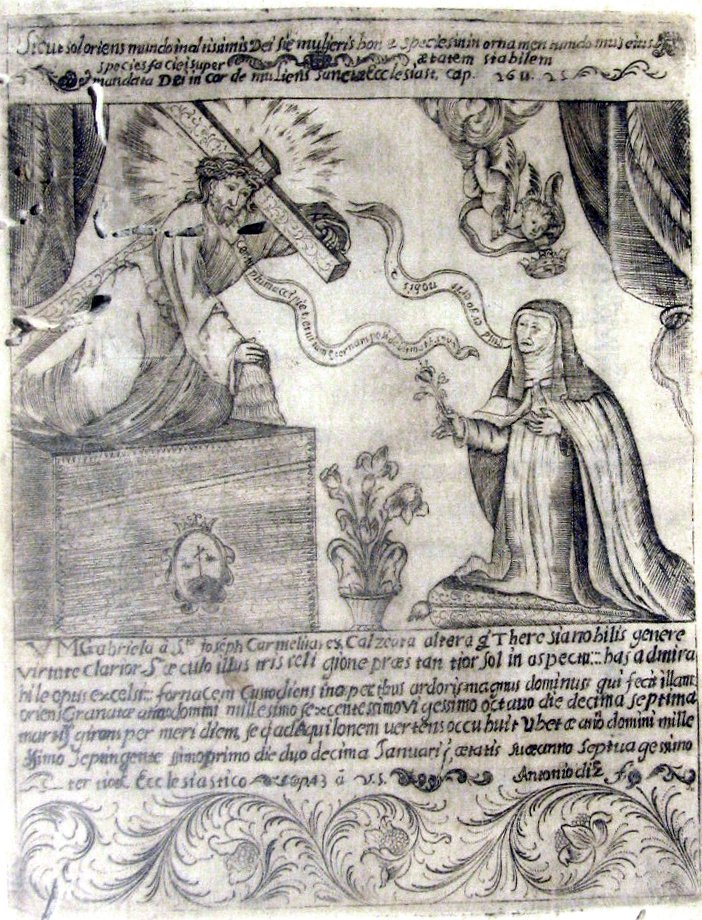 Sicut sol oriens mundo in altissimis Dei sic mulieris bone species in in ornamentum domus eius
species faciei super ætatem stabilem
et mandata Dei in cor de mulieris sanctæ Ecclesiast. cap. 26 u. 21
nobis
V M Gabriela á S.n Joseph Carmelita ex Calzeata altera q̃ Theresia nobilis genere
virtute clarior Sæculo illustris religione præstantior sol in aspectu has admira
bile opus excelsi fornacem Custodiens in operibus ardoris magnus dominus qui fecit illam
oriens Granatæ anno domini millesimo sexcentessimo vigessimo octavo die decima septima
martij girans per meridiem, sed ad Aquilonem vertens occubuit Vbetæ año domini mille
ssimo Septingente ssimo primo die duo decima Januarij ætatis suæ anno Septuagessimo
tertio Ecclesiastico cap 43 á v. 5. Antonio diz f.